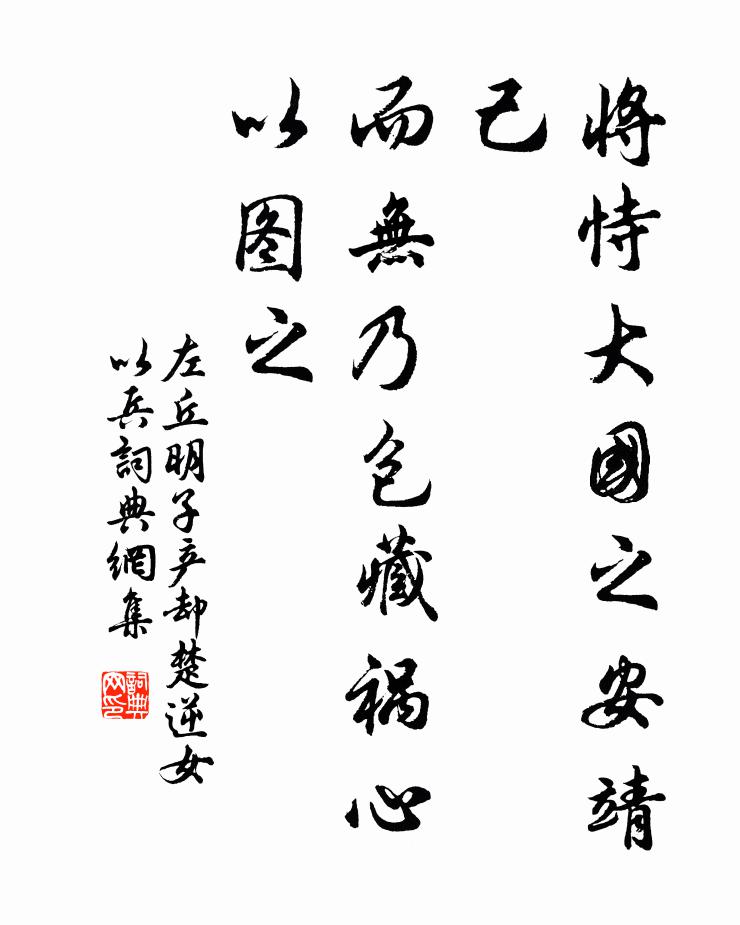 将恃大國之安靖
己
而無乃包藏禍心
以图之
左丘明子产却楚逆女
以兵詞典網集
詞典
网印